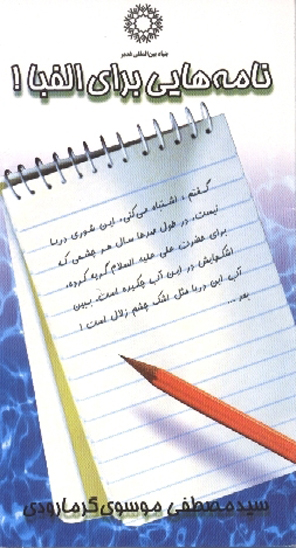 بنیاد بین‌المللی غدیر
نامه‌هایی برای الفبا !
گفتم ، اشتباه می‌کنی، این شوری دریا
نیست، در طول صدها سال هر چشمی که
برای حضرت علی علیه السلام گریه کرده،
اشکهایش در این آب چکیده است. ببین
آب این دریا مثل اشک چشم زلال است !
بعد ...
سید مصطفی موسوی گرمارودی